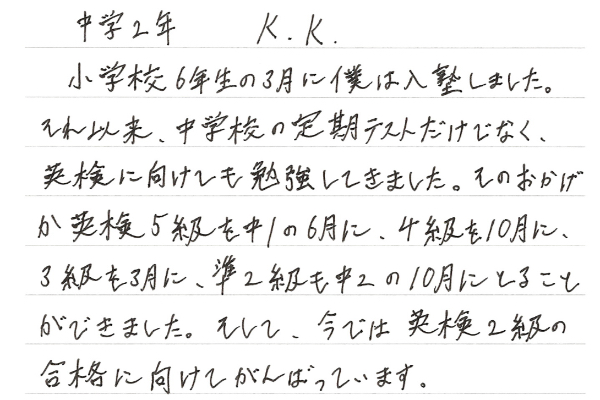 中学2年 K.K.
小学校6年生の3月に僕は入塾しました。
それ以来、中学校の定期テストだけでなく、
英検に向けても勉強してきました。そのおかげ
か英検5級を中1の6月に、4級を10月に、
3級を3月に、準2級も中2の10月にとること
ができました。そして、今では英検2級の
合格に向けてがんばっています。